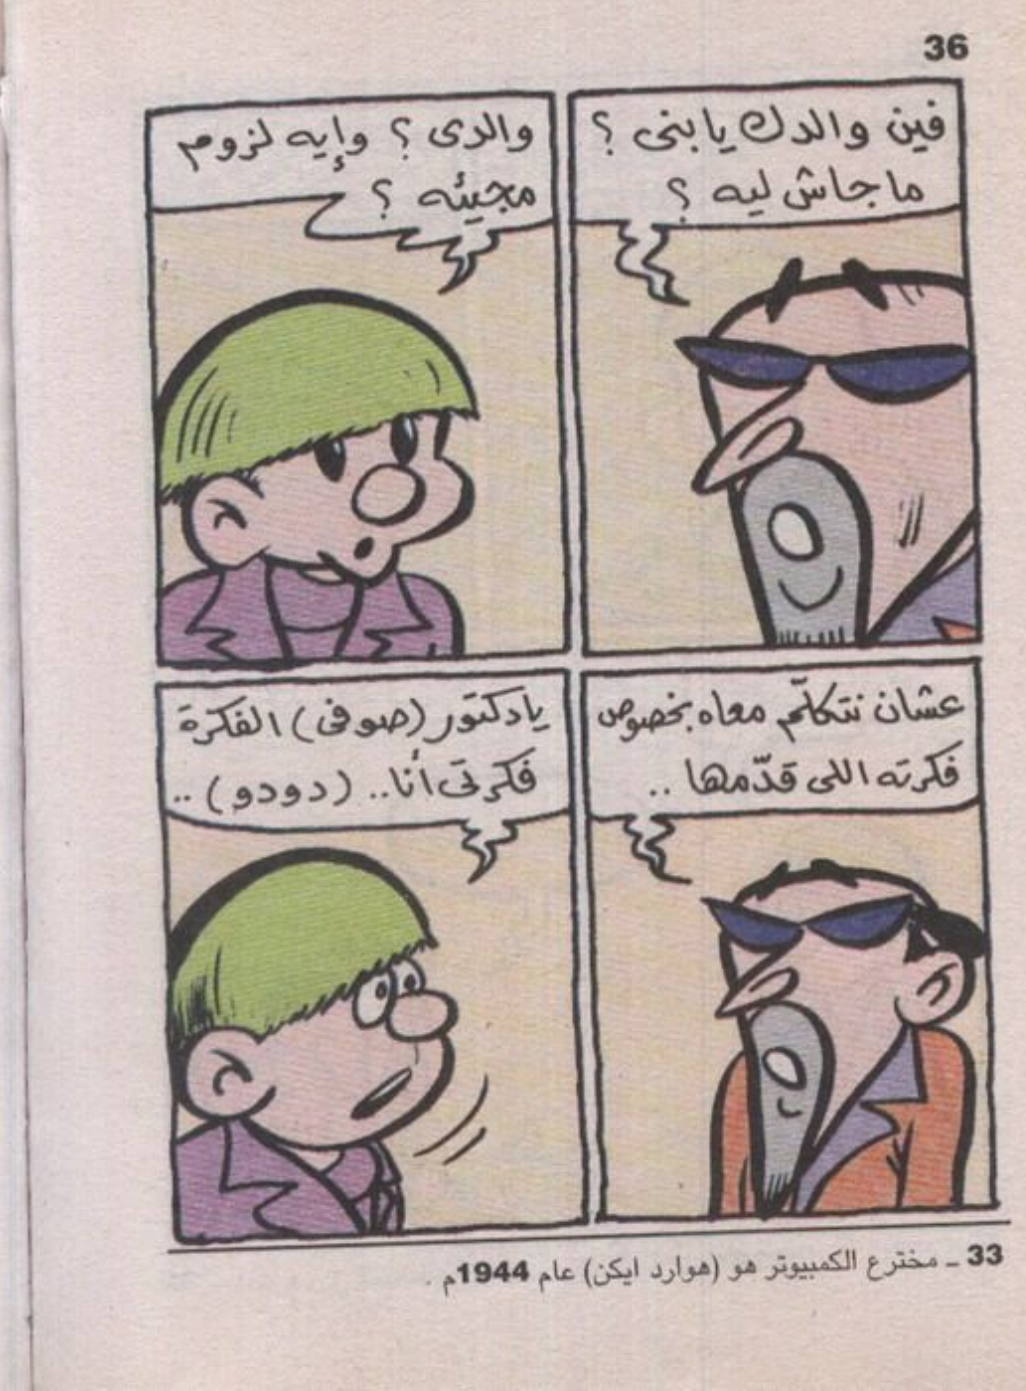 36
فين والدك يابنى ؟
ماجاش ليه ؟
والدى ؟ وإيه لزوم
مجيئه ؟
عشان نتكلّم معاه بخصوص
فكرته اللى قدّمها ..
يادكتور (صوفى) الفكرة
فكرتى أنا.. (دودو) ..
33 ـ مخترع الكمبيوتر هو (هوارد ايكن) عام 1944م .